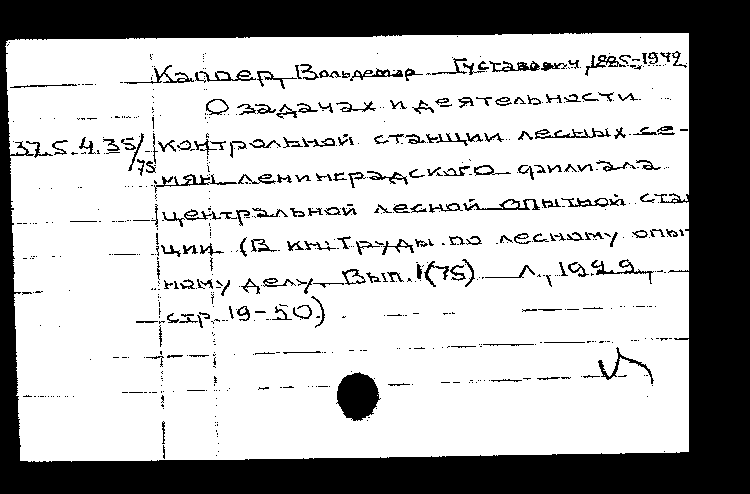 Каппер, Вольдемар Густавович, 1885-1942
О задачах и деятельности
37.5.4.35/75 контрольной станции лесных се-
мян Ленинградского филиала
центральной лесной опытной стан
ции (В кн: Труды по лесному опыт
ному делу, Вып. 1(75) Л., 1929,
стр. 19-50)